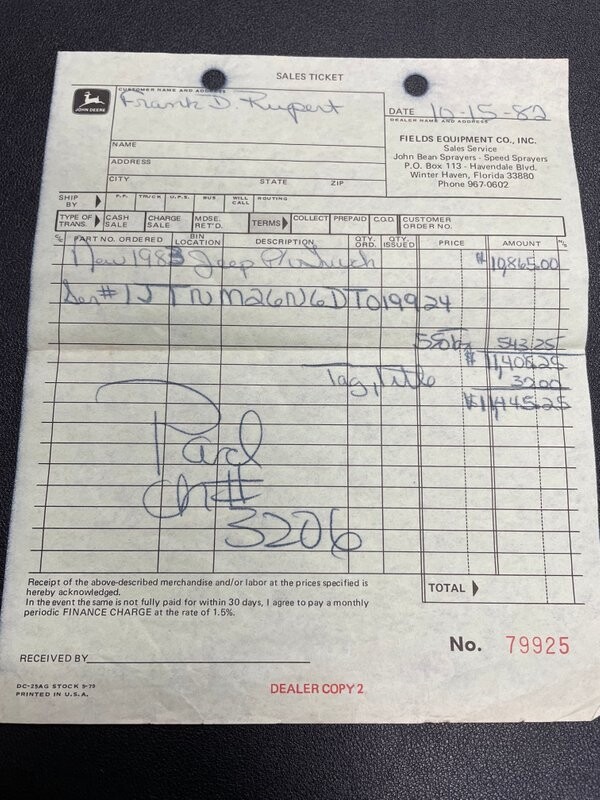 SALES TICKET
JOHN DEERE
CUSTOMER NAME AND ADDRESS
Frank D. Rupert
DATE 10-15-82
DEALER NAME AND ADDRESS
FIELDS EQUIPMENT CO., INC.
Sales Service
John Bean Sprayers - Speed Sprayers
P.O. Box 113 - Havendale Blvd.
Winter Haven, Florida 33880
Phone 967-0602
NAME
ADDRESS
CITY STATE ZIP
SHIP BY P.P. TRUCK U.P.S. BUS WILL CALL ROUTING
TYPE OF TRANS. CASH SALE CHARGE SALE MDSE. RET'D. TERMS COLLECT PREPAID C.O.D. CUSTOMER ORDER NO.
PART NO. ORDERED BIN LOCATION DESCRIPTION QTY. ORD. QTY. ISSUED PRICE AMOUNT
New 1983 Jeep P/U Truck $10,865.00
Ser #1JTNM26N6DT019924
543.25
Tag, Title 32.00
Paid
Ck#
3206
Receipt of the above-described merchandise and/or labor at the prices specified is
hereby acknowledged.
In the event the same is not fully paid for within 30 days, I agree to pay a monthly
periodic FINANCE CHARGE at the rate of 1.5%.
TOTAL
No. 79925
RECEIVED BY
DC-25AG STOCK 9-79
PRINTED IN U.S.A.
DEALER COPY 2